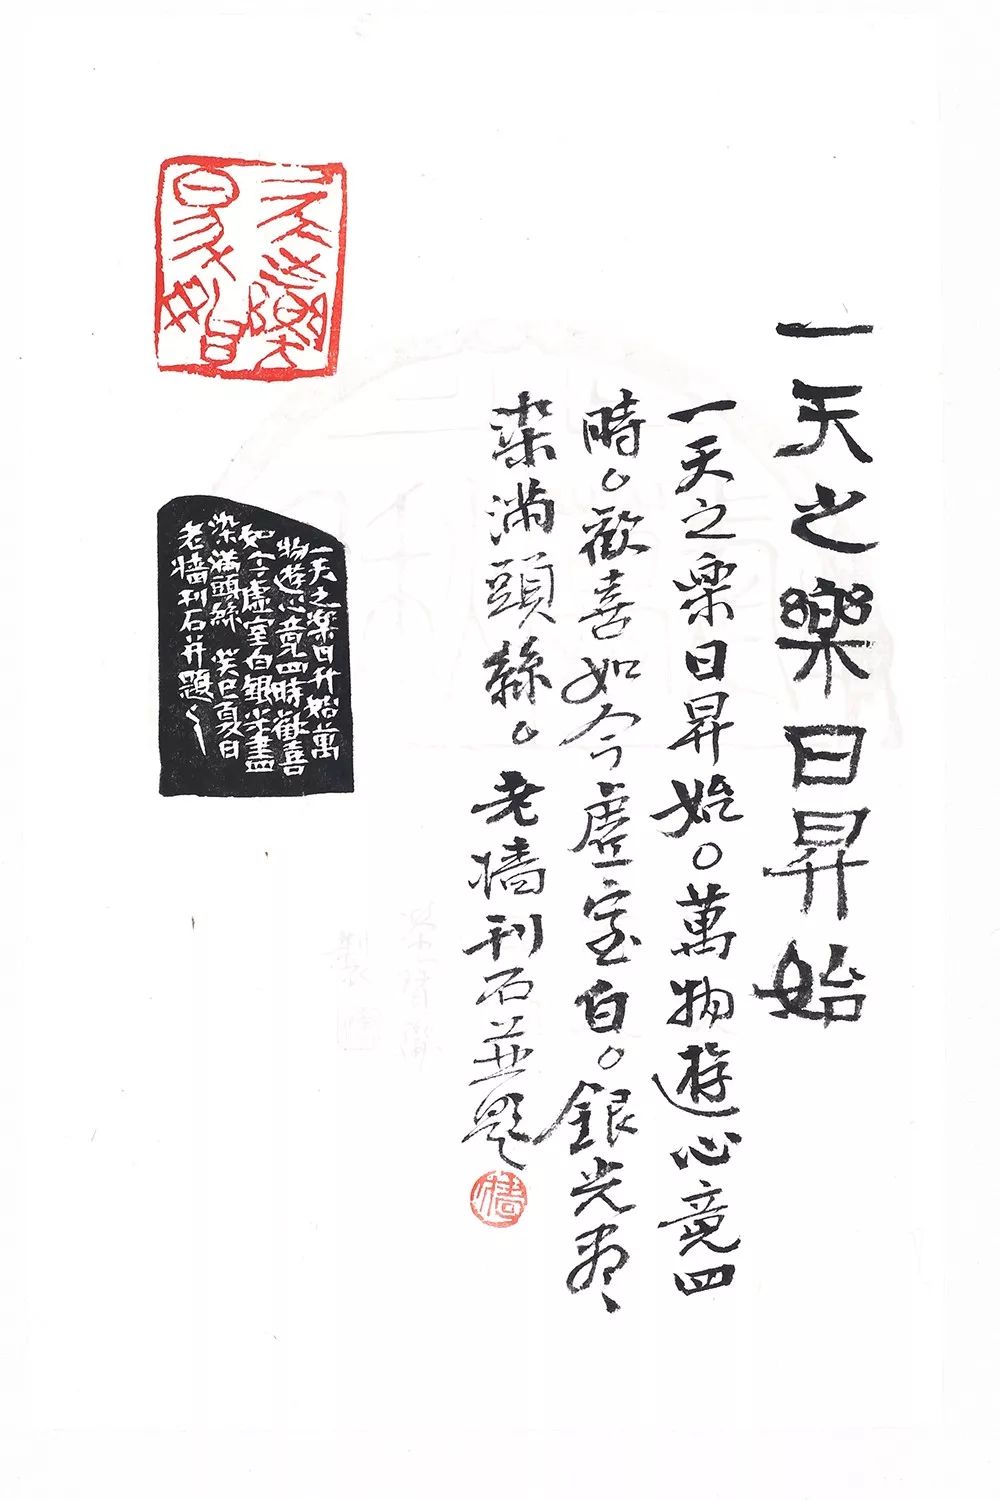 一天之樂日昇始
一天之樂日昇始。萬物遊心竟四
時。歡喜如今虛室白。銀光盡
染滿頭絲。老牆刊石並題
牆
一天之樂
日昇始
一天之樂日升始萬
物遊心竟四時歡喜
如今虛室白銀光盡
染滿頭絲 癸巳夏日
老牆刊石并題